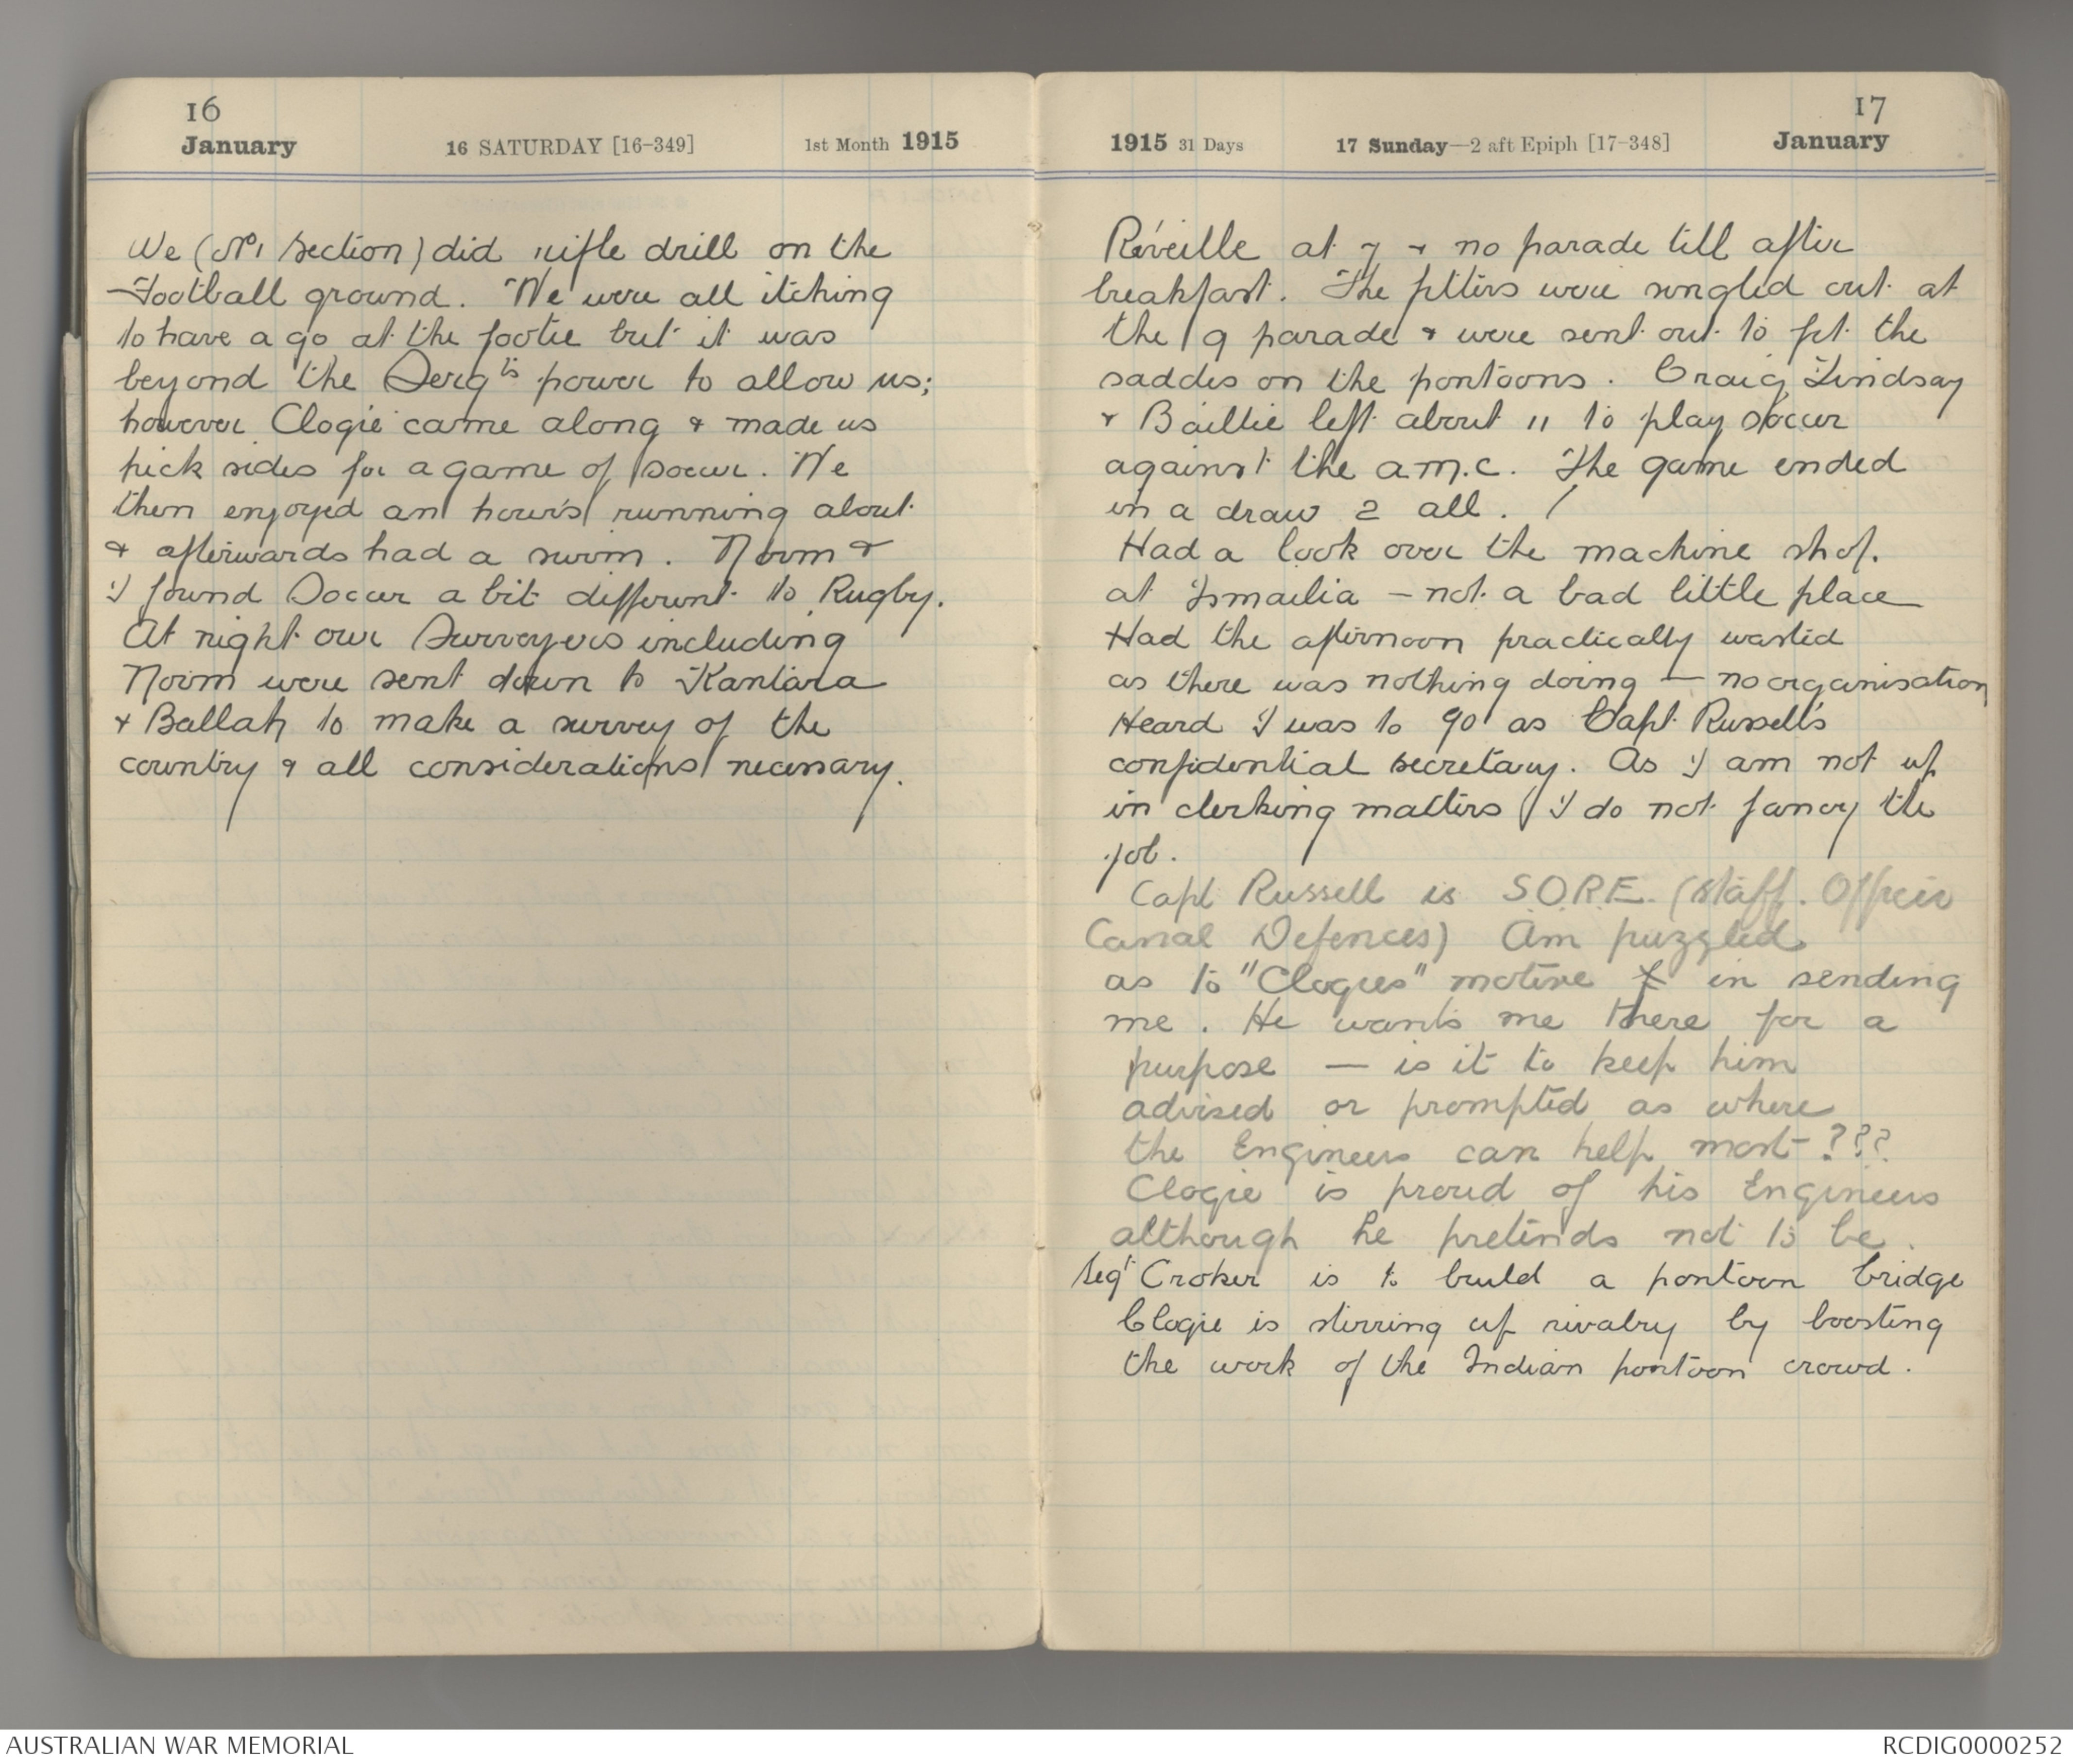 16
January 16 SATURDAY [16-349] 1st Month 1915
We (No1 Section) did rifle drill on the
Football ground. We were all itching
to have a go at the footie but it was
beyond the Serg ts power to allow us;
however Clogie came along & made us
pick sides for a game of soccer. We
then enjoyed an hour's running about
& afterwards had a swim. Norm &
I found Soccer a bit different to Rugby.
At night our Surveyors including
Norm were sent down to Kantara
& Ballah to make a survey of the
country & all considerations necessary.
17
1915 31 Days 17 Sunday—2 aft Epiph [17-348] January
Réveille at 7 & no parade till after
breakfast. The fitters were singled out at
the 9 parade & were sent out to fit the
saddes on the pontoons. Craig, Lindsay
& Baillie left about 11 to play soccer
against the a.m.c. The game ended
in a draw 2 all. /
Had a look over the machine shop.
at Ismailia – not a bad little place
Had the afternoon practically wasted
as there was nothing doing — no organisation
Heard I was to go as Capt. Russell's
confidential secretary. As I am not up
in clerking matters I do not fancy the
job.
Capt Russell is S.O.R.E. (Staff. Officer
Canal Defences) Am puzzled
as to "Clogies" motive in sending
me. He wants me there for a
purpose — is it to keep him
advised or prompted as where
the Engineers can help most???
Clogie is proud of his Engineers
although he pretends not to be.
Sergt Croker is to build a pontoon bridge
Clogie is stirring up rivalry by boosting
the work of the Indian pontoon crowd.
AUSTRALIAN WAR MEMORIAL RCDIG0000252